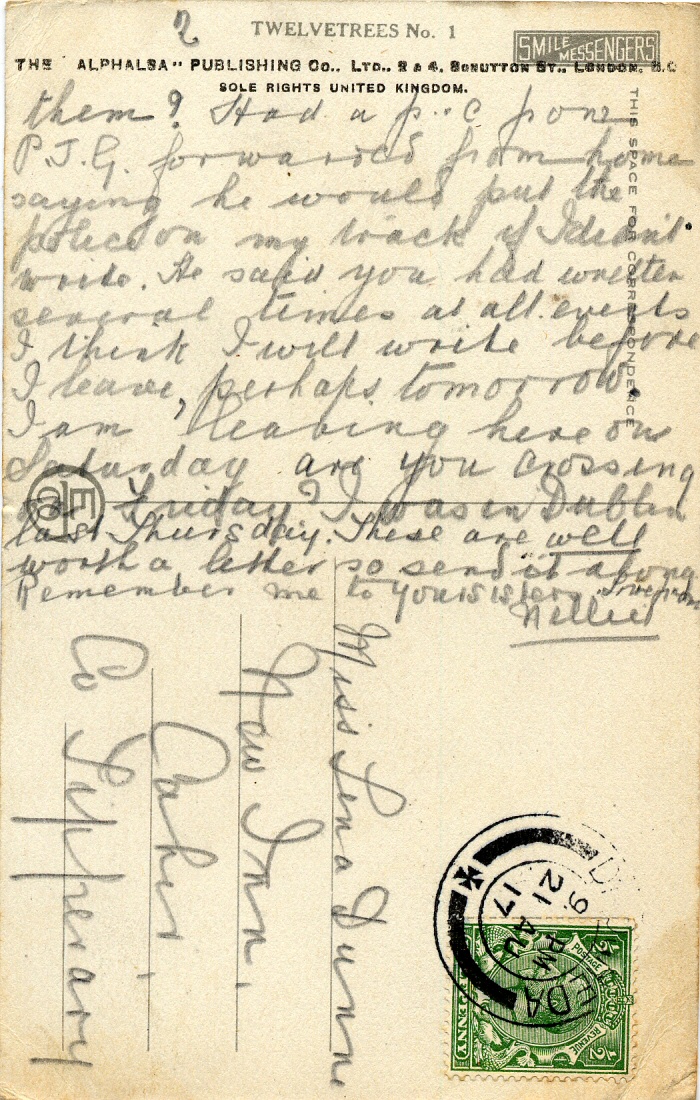 2
TWELVETREES No. 1
SMILE MESSENGERS
THE "ALPHALSA" PUBLISHING Co., LTD., 2 & 4, SCRUTTON ST., LONDON, E.C
SOLE RIGHTS UNITED KINGDOM.
THIS SPACE FOR CORRESPONDENCE
them? Had a p.c from
P.J.G. forwarded from home
saying he would put the
police on my track if I didn't
write. He said you had written
several times at all events
I think I will write before
I leave, perhaps tomorrow.
I am leaving here on
Saturday are you crossing
on Friday? I was in Dublin
last Thursday. These are well
worth a letter so send it along
Remember me to your sister
Nellie
Miss Lena Dunne
New Inn.
Cahir.
Co Tipperary
9 PM
21 AU
17
DA
POSTAGE
REVENUE
1/2
1/2
PENNY